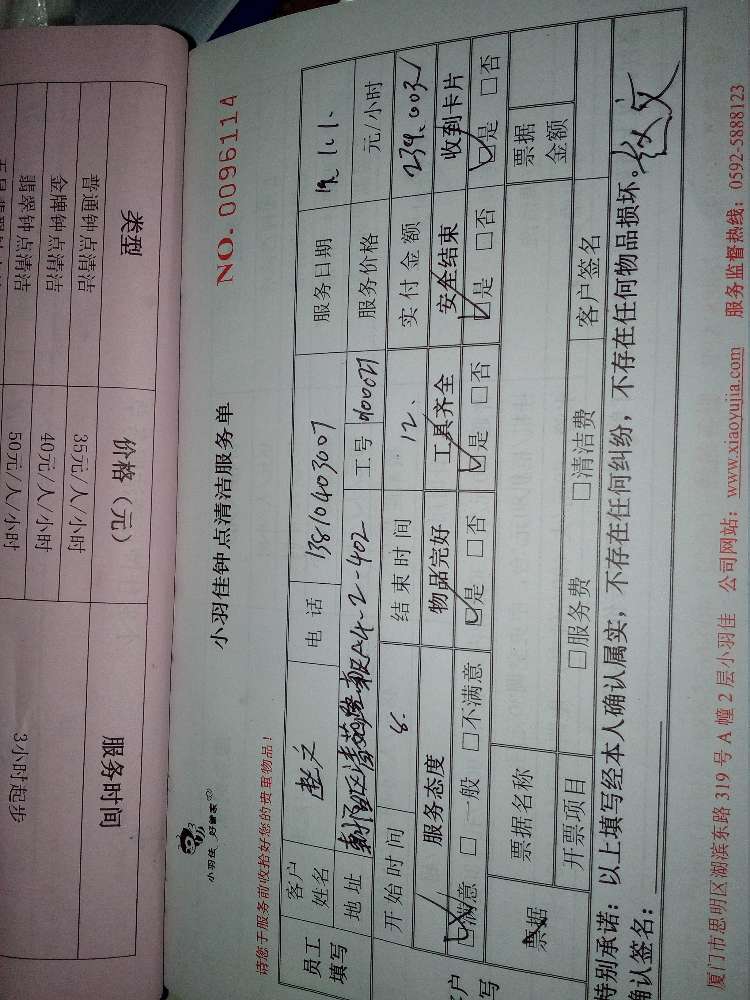 类型 价格（元） 服务时间
普通钟点清洁 35元/人/小时
金牌钟点清洁 40元/人/小时 3小时起步
翡翠钟点清洁 50元/人/小时
小羽佳 好管家
小羽佳钟点清洁服务单
NO. 0096114
请您于服务前收拾好您的贵重物品！
员工填写 客户姓名 赵文 电话 13810403007 服务日期 19.1.1.
地址 4-2-402 工号 900021 服务价格 元/小时
开始时间 8. 结束时间 12. 实付金额 239.003
服务态度 物品完好 工具齐全 安全结束 收到卡片
☑满意 □一般 □不满意 ☑是 □否 ☑是 □否 ☑是 □否 ☑是 □否
票据 票据名称 票据金额
开票项目 □服务费 □清洁费 客户签名
特别承诺：以上填写经本人确认属实，不存在任何纠纷，不存在任何物品损坏。赵文
确认签名：
厦门市思明区湖滨东路 319 号 A 幢 2 层小羽佳 公司网站：www.xiaoyujia.com 服务监督热线：0592-5888123